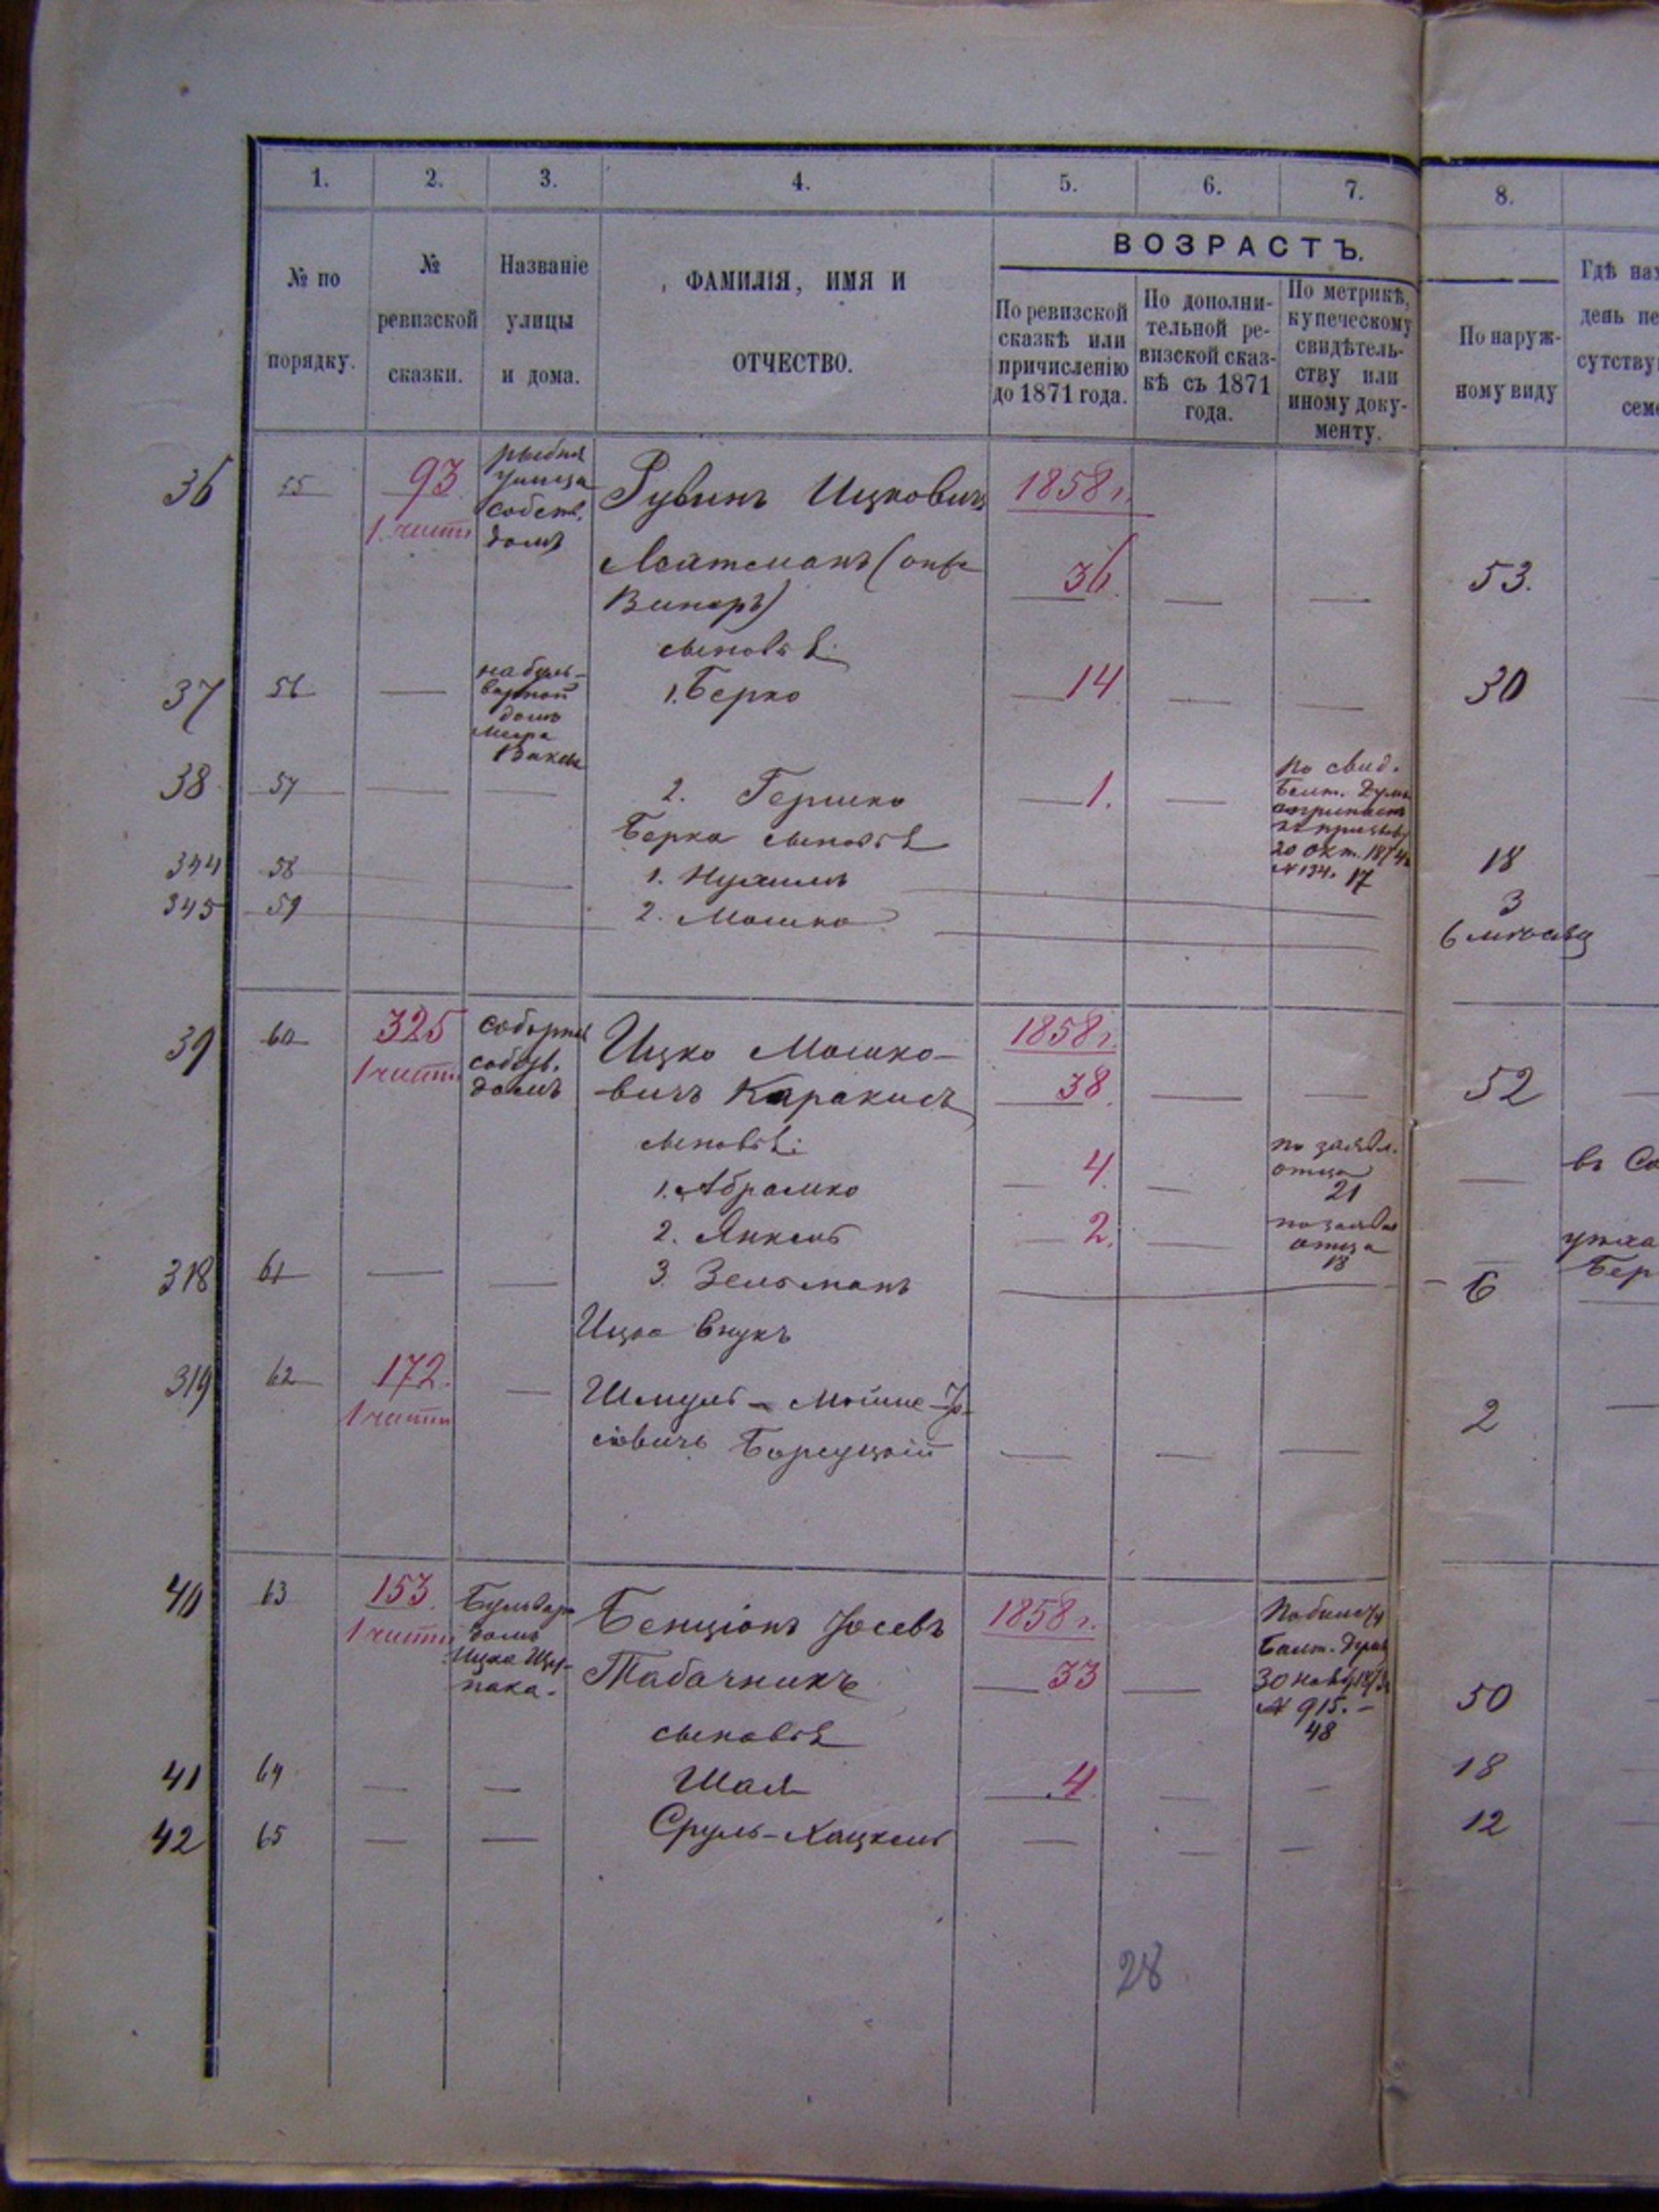 1. 2. 3. 4. 5. 6. 7. 8.
ВОЗРАСТЪ.
№ по
порядку.
№
ревизской
сказки.
Названіе
улицы
и дома.
ФАМИЛІЯ, ИМЯ И
ОТЧЕСТВО.
По ревизской
сказкѣ или
причисленію
до 1871 года.
По дополни-
тельной ре-
визской сказ-
кѣ съ 1871
года.
По метрикѣ,
купеческому
свидѣтель-
ству или
иному доку-
менту.
По наруж-
ному виду
Гдѣ нах
день пе
сутству
сем
36 55 93 1 части
рыбная
улица
собств.
домъ
Рувинъ Ицковичъ 1858 г.
Лейтманъ (онъ 36 53.
Винеръ)
сыновья:
37 56 — 1. Берко 14 — — 30
домъ
Меера
38 57 — — 2. Гершко 1. —
по свид.
Балт. Думы
20 окт. 1874
№ 134. 17
18
Берка сыновья
344 58 1. Нухимъ 3
345 59 2. Мошко 6 мѣсяц
39 60 325 1 части
соборная
собств.
домъ
Ицко Мошко- 1858 г.
вичъ Каракисъ 38 — — 52
сыновья:
1. Абрамко 4 —
по заявл.
отца
21
— въ Со
2. Янкель 2. —
по заявл
отца
18
— уѣха
Бер
318 61 — — 3. Зельманъ 6
Ицка внукъ
319 62 172. 1 части — Шмуль-Мойше Іо-
сіовичъ — — — 2
40 63 153. 1 части
Бульвар
домъ
Ицка Щу-
пака.
Бенціонъ Іосевъ 1858 г.
Табачникъ 33 —
Балт. Думы
30 нояб. 187
№ 915. —
48
50
сыновья
41 64 — — Шая 4 — — 18
42 65 — — Сруль-Хацкель — — — 12
28